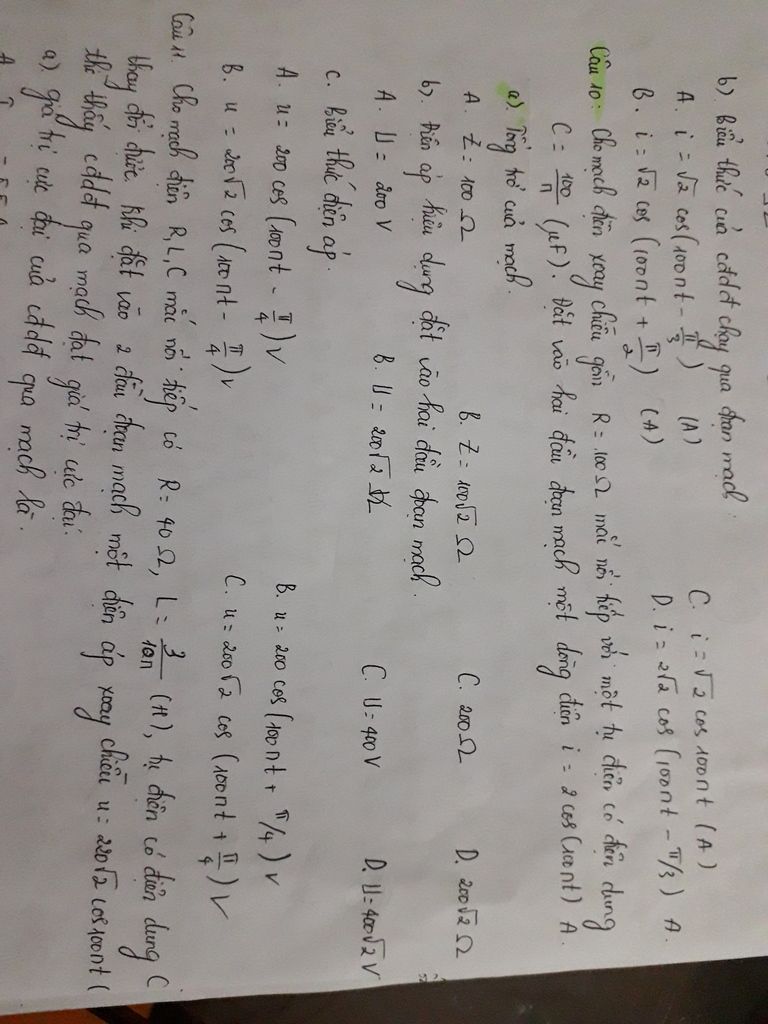 b) Biểu thức của cđdđ chạy qua đoạn mạch
A. i = √2 cos(100πt - π/3) (A) C. i = √2 cos 100πt (A)
B. i = √2 cos (100πt + π/2) (A) D. i = 2√2 cos (100πt - π/3) A.
Câu 10: Cho mạch điện xoay chiều gồm R = 100Ω mắc nối tiếp với một tụ điện có điện dung
C = 100/π (μF). Đặt vào hai đầu đoạn mạch một dòng điện i = 2 cos(100πt) A.
a) Tổng trở của mạch.
A. Z = 100Ω B. Z = 100√2 Ω C. 200Ω D. 200√2 Ω
b) Điện áp hiệu dụng đặt vào hai đầu đoạn mạch.
A. U = 200 V B. U = 200√2 C. U = 400V D. U = 400√2 V
c. Biểu thức điện áp.
A. u = 200 cos (100πt - π/4) V B. u = 200 cos(100πt + π/4) V
B. u = 200√2 cos (100πt - π/4) V C. u = 200√2 cos (100πt + π/4) V
Câu 11. Cho mạch điện R, L, C mắc nối tiếp có R = 40Ω, L = 3/10π (H), tụ điện có điện dung C
thay đổi được. Khi đặt vào 2 đầu đoạn mạch một điện áp xoay chiều u = 220√2 cos100πt (
thì thấy cđdđ qua mạch đạt giá trị cực đại.
a) giá trị cực đại của cđdđ qua mạch là.